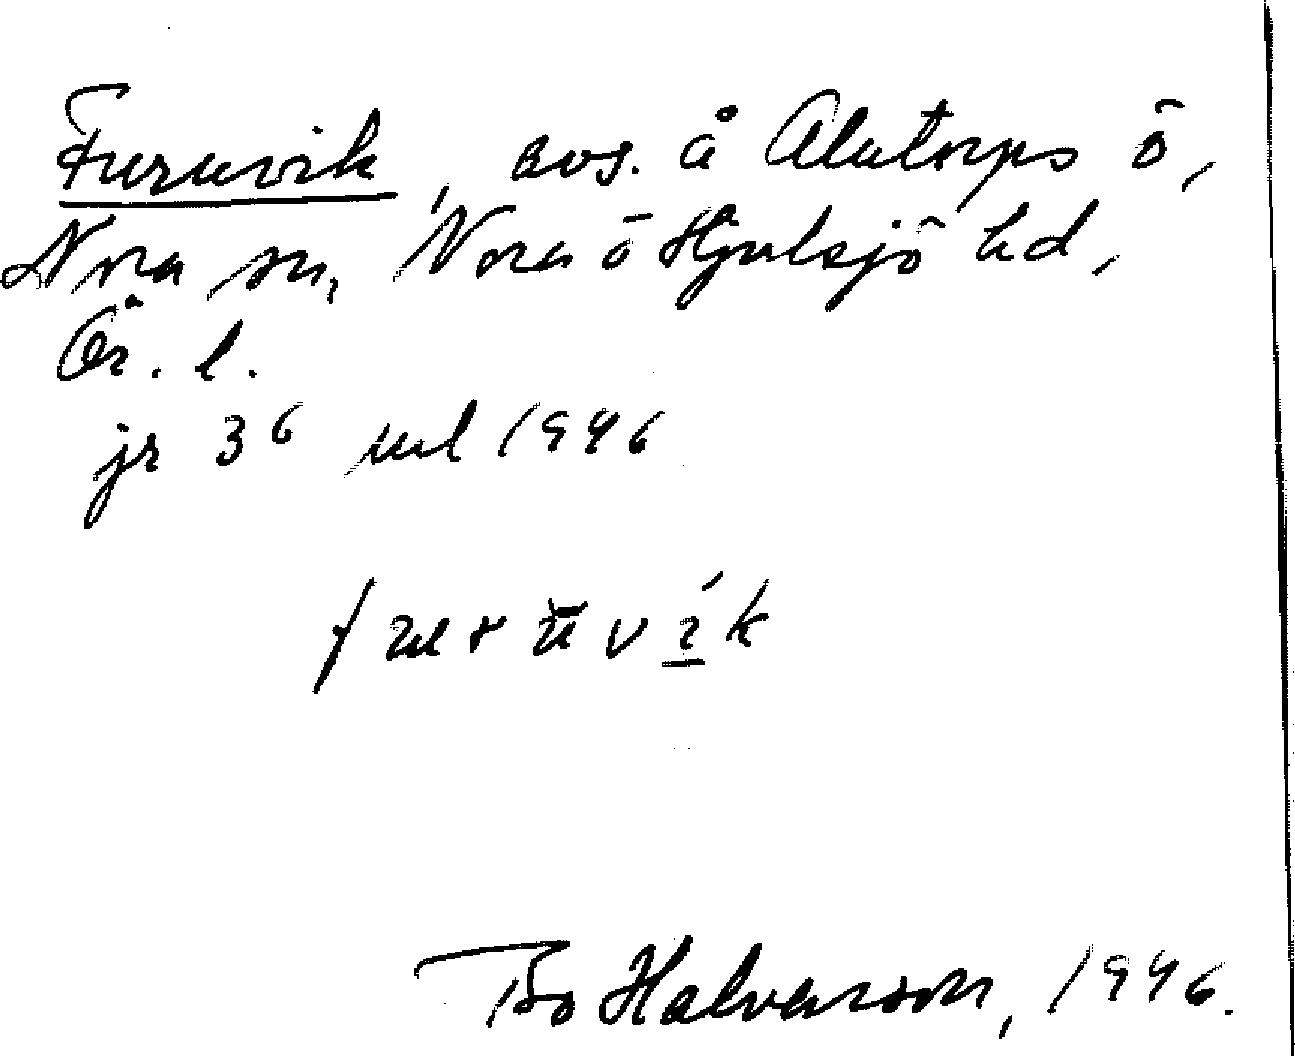 Furuvik, avs. å Alntorps ö,
Nora sn, Nora ö Hjulsjö hd,
Ör. l.
jr 36 upl 1946
Bo Halvarson, 1946.